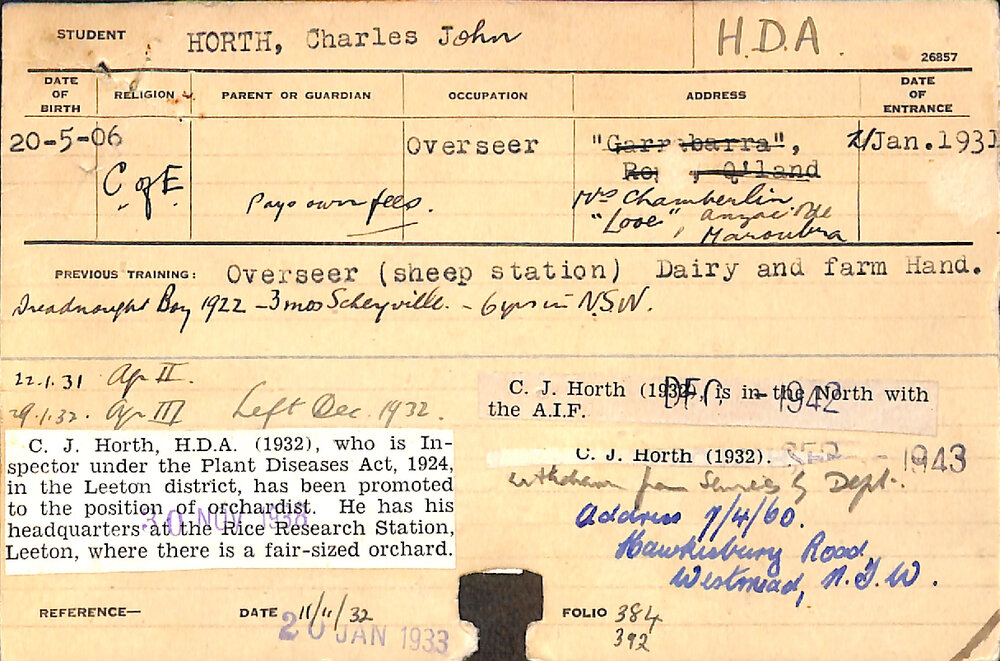 STUDENT HORTH, Charles John H.D.A. 26857
DATE OF BIRTH RELIGION PARENT OR GUARDIAN OCCUPATION ADDRESS DATE OF ENTRANCE
20-5-06 Overseer "Garr barra", 21/Jan.1931
Q'land
C of E Pays own fees. Mrs Chamberlin
"Looe", Anzac Pde
Maroubra
PREVIOUS TRAINING: Overseer (sheep station) Dairy and farm Hand.
Dreadnought Boy 1922 - 3 mos Scheyville. - 6 yrs in N.S.W.
22.1.31 Ag II.
29.1.32. Ag III Left Dec. 1932.
C. J. Horth, H.D.A. (1932), who is In-
spector under the Plant Diseases Act, 1924,
in the Leeton district, has been promoted
to the position of orchardist. He has his
headquarters at the Rice Research Station,
Leeton, where there is a fair-sized orchard.
30 NOV 1938
C. J. Horth (1932), is in the North with
the A.I.F.
DEC - 1942
C. J. Horth (1932). SEP - 1943
withdrawn from Services by Dept.
Address 7/4/60.
Hawkesbury Road,
Westmead, N.S.W.
REFERENCE— DATE 11/11/32 FOLIO 384
20 JAN 1933 392